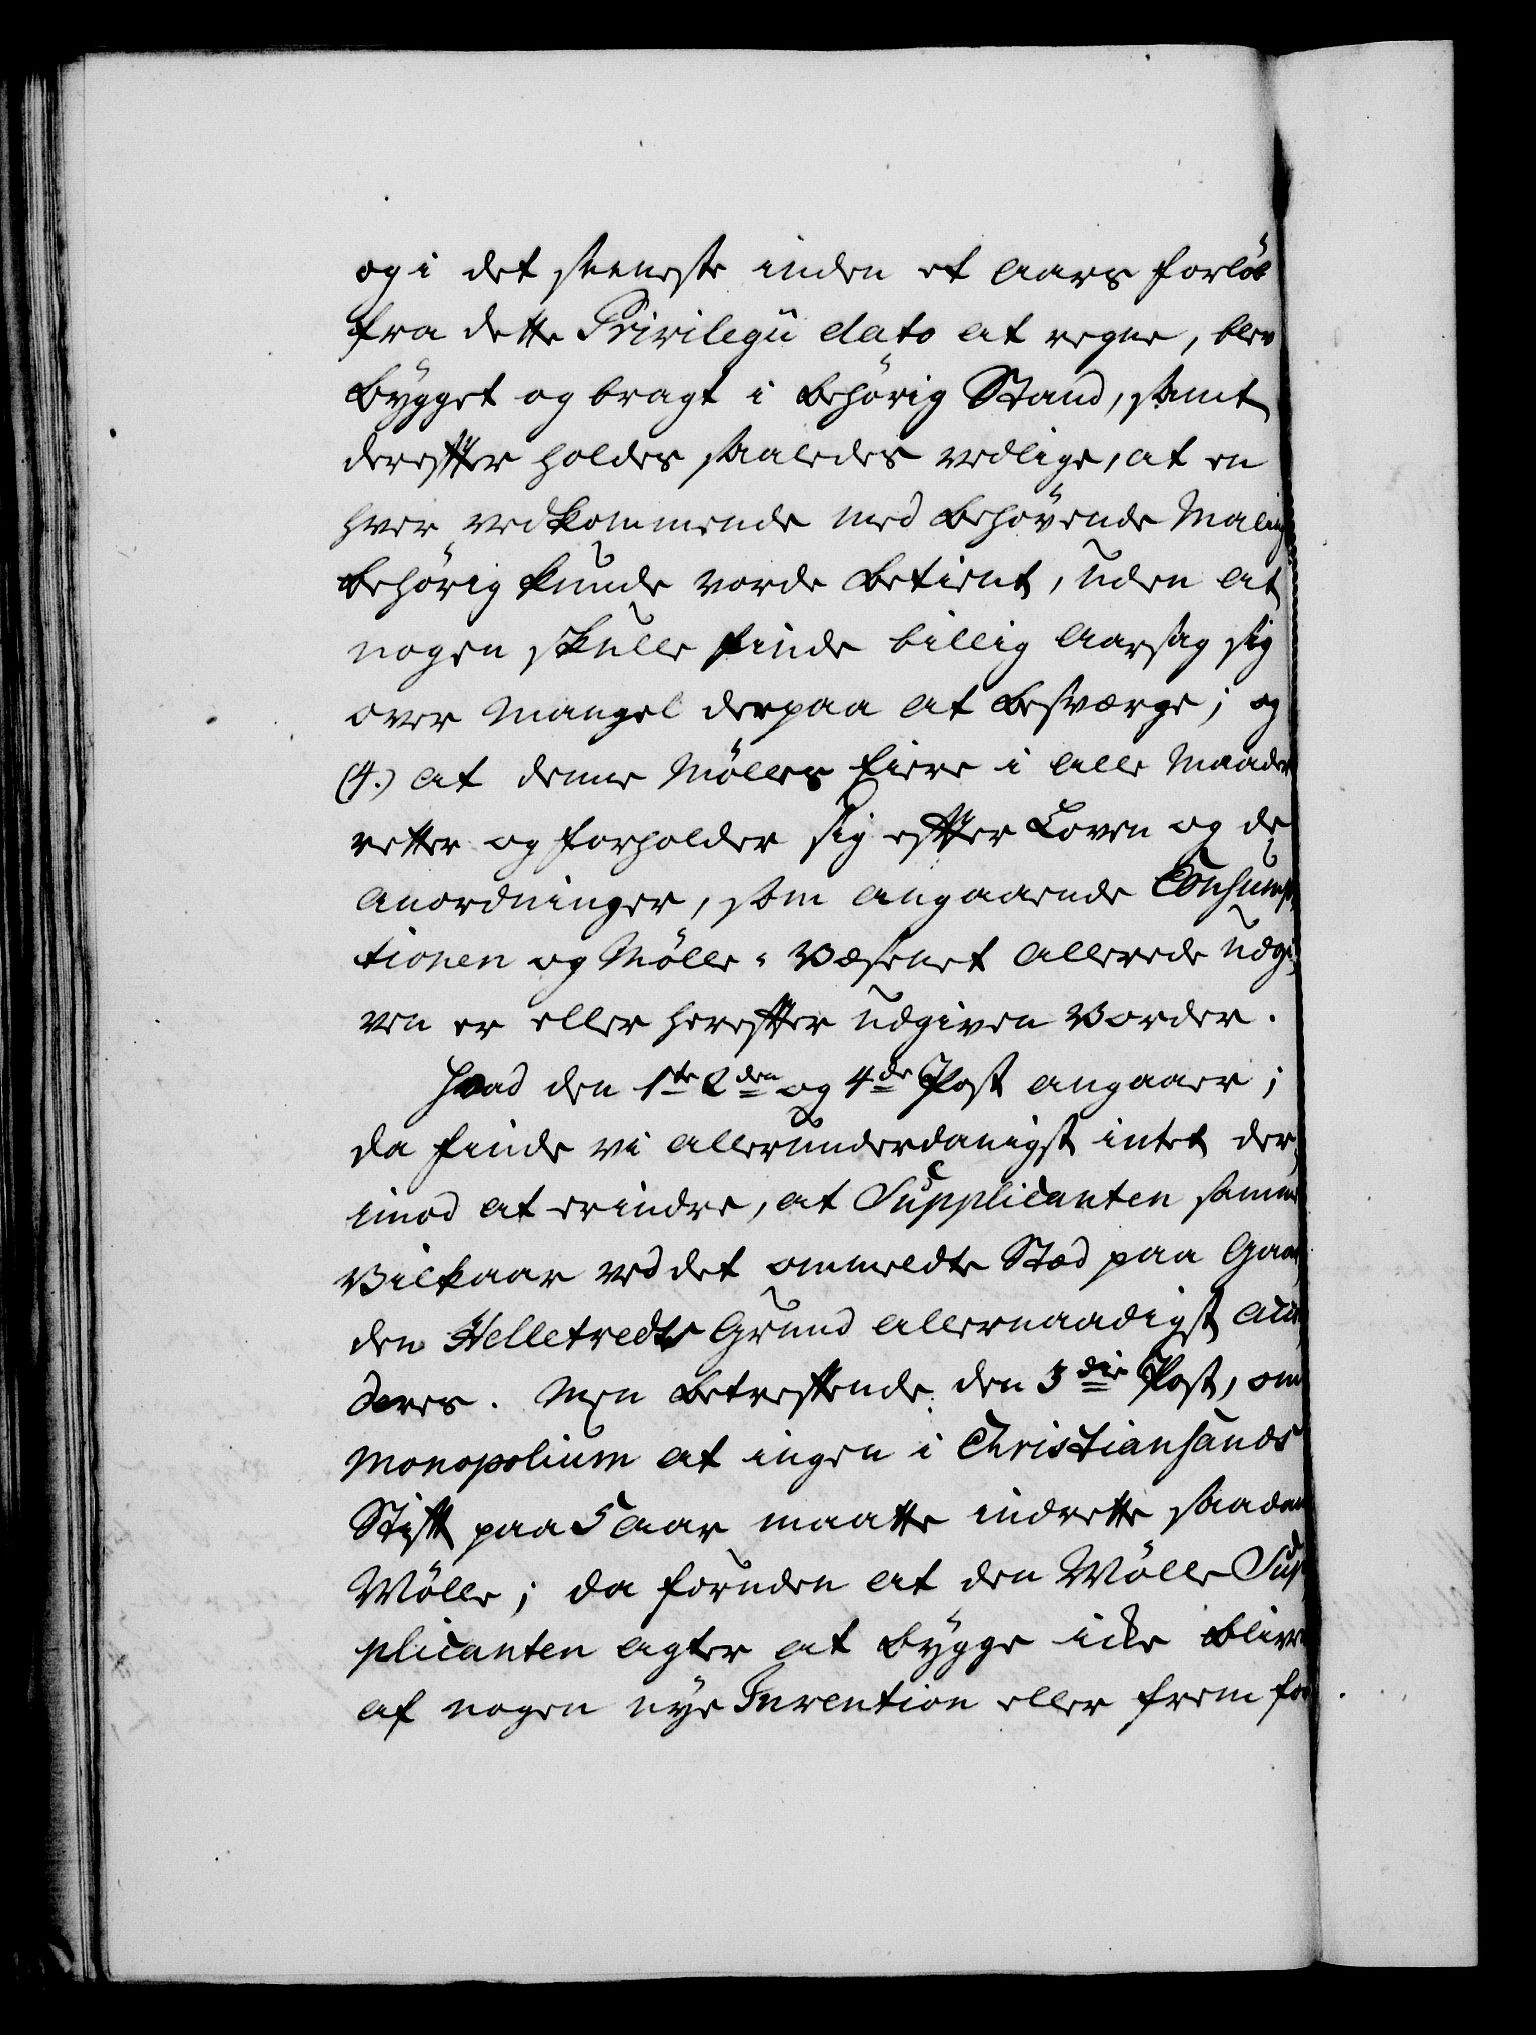 og i det seeneste inden et Aars forløb
fra dette Privilegii dato at regne, blev
bygget og bragt i behørig Stand, samt
derefter holdes saaledes vedlige, at en
hver vedkommende med behøvende Maling
behørig kunde vorde betient, uden at
nogen skulle finde billig Aarsag sig
over Mangel derpaa at besværge; og
(4.) at denne Mølles Eiere i alle Maader
retter og forholder sig efter Loven og de
Anordninger, som angaaende Consump,
tionen og Mølle-Væsenet allerede udgi,
ven er eller herefter udgiven vorder.
Hvad den 1ste 2den og 4de Post angaaer;
da finde vi allerunderdanigst intet der,
imod at erindre, at Supplicanten samme
Vilkaar ved det ommeldte Sted paa Gaar,
den Helletreds Grund allernaadigst accor,
deres. Men betreffende den 3die Post, om
Monopolium at ingen i Christiansands
Stift paa 5 Aar maatte indrette saadan
Mølle; da foruden at den Mølle Sup,
plicanten agter at bygge icke bliver
af nogen nye Invention eller frem for